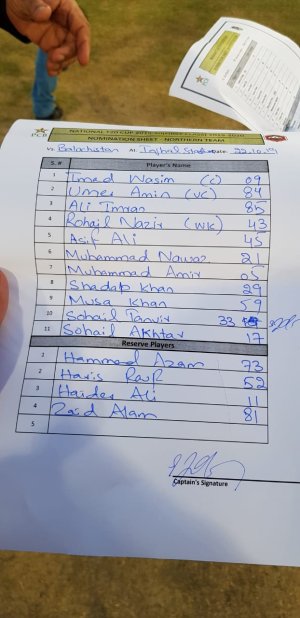 PCB
NATIONAL T20 CUP 2019-20
NOMINATION SHEET - NORTHERN TEAM
Vs. Balochistan At. Iqbal Stadium Date: 22.10.19
S. # Player's Name
1 Imad Wasim (C) 09
2 Umer Amin (VC) 84
3 Ali Imran 85
4 Rohail Nazir (WK) 43
5 Asif Ali 45
6 Muhammad Nawaz 21
7 Muhammad Amir 05
8 Shadab Khan 29
9 Musa Khan 59
10 Sohail Tanvir 33
11 Sohail Akhtar 17
Reserve Players
1 Hammad Azam 73
2 Haris Rauf 52
3 Haider Ali 11
4 Zaid Alam 81
5
Captain's Signature